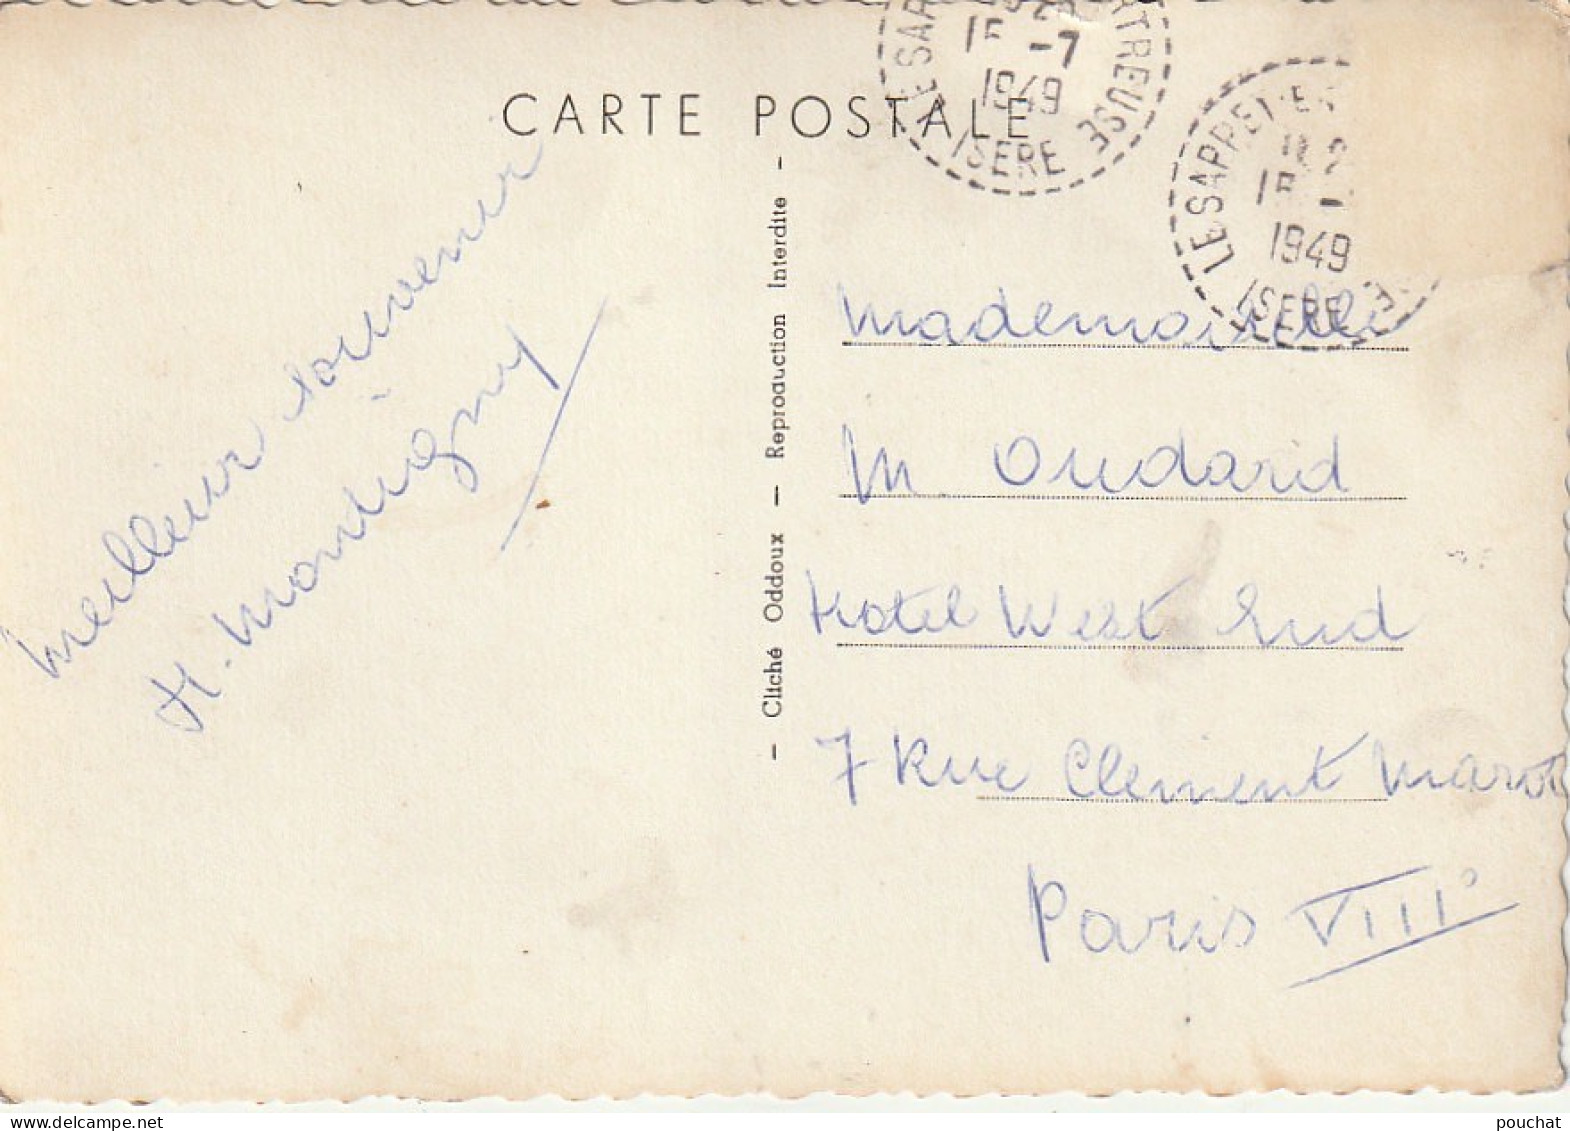 CARTE POSTALE
15 -7
1949
ISERE
LE SAPPEY-EN
1949
ISERE
Meilleur souvenir
H. Mondigny
- Cliché Oddoux — Reproduction Interdite -
Mademoiselle
M Oudard
Hotel West Sud
7 Rue Clement Marot
Paris VIII°
www.delcampe.net
pouchat